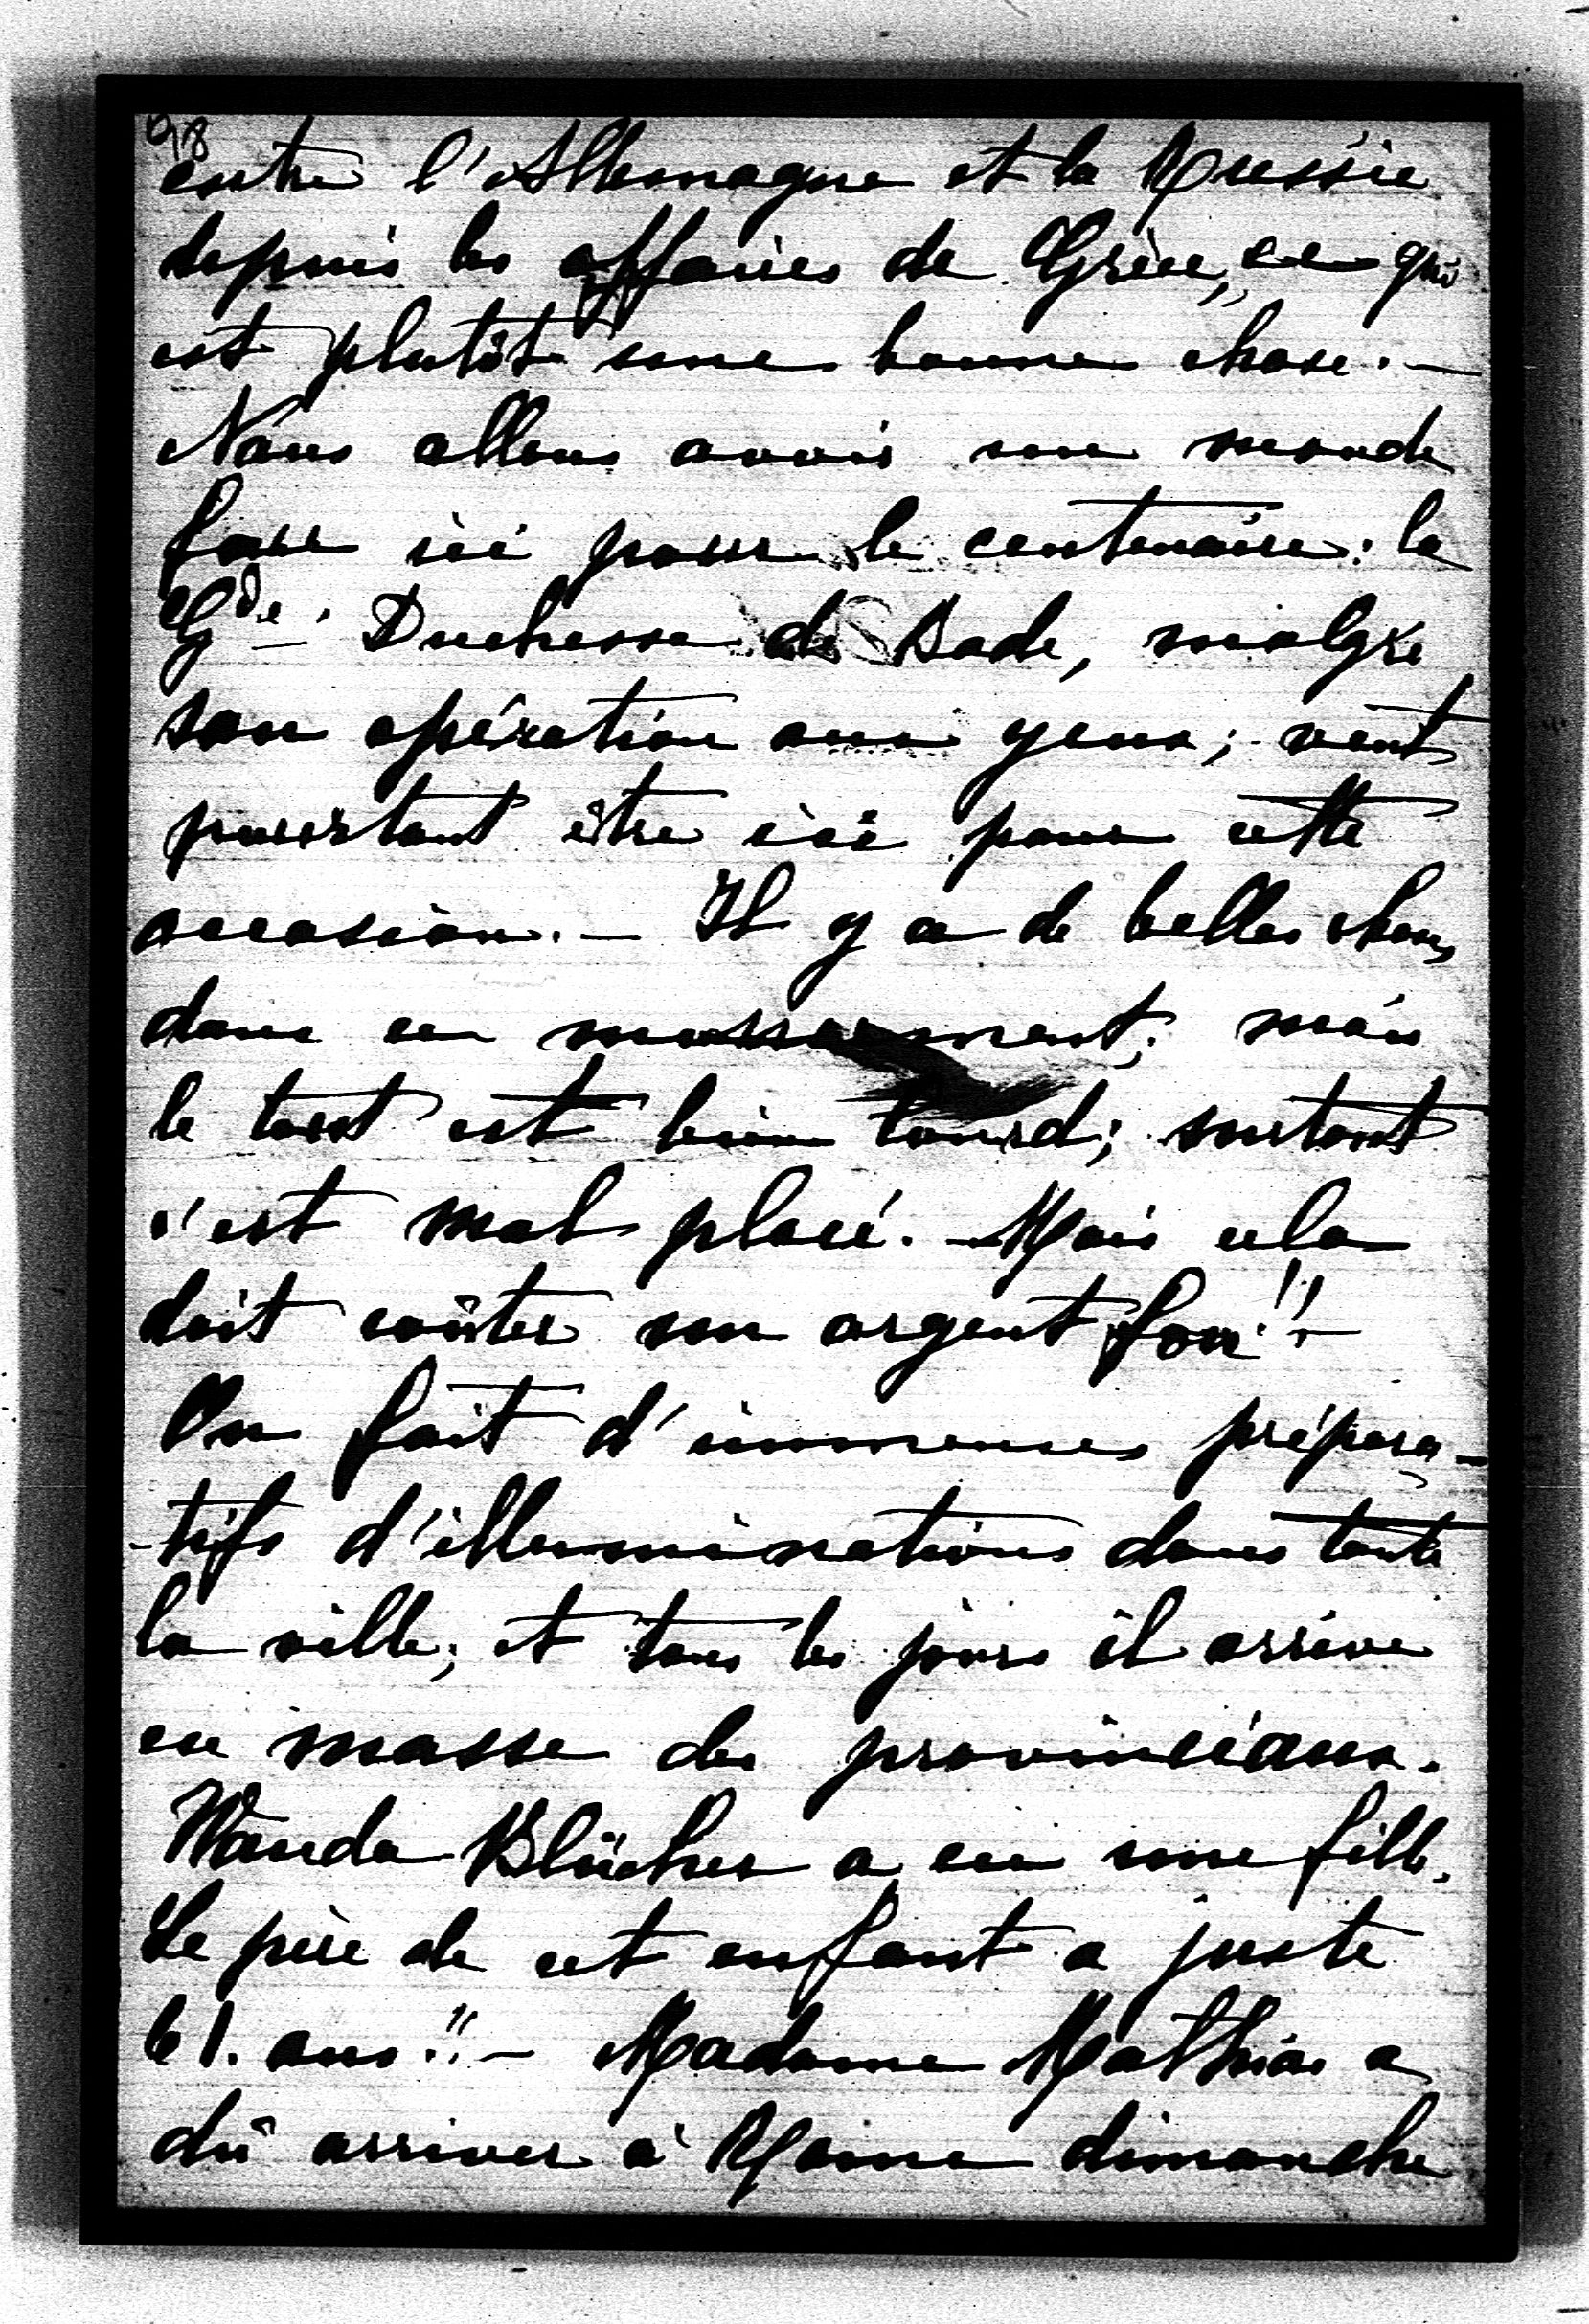 98
entre l'Allemagne et la Russie
depuis les affaires de Grèce, ce qui
est plutôt une bonne chose. —
Nous allons avoir un monde
fou ici pour le centenaire: la
Gde Duchesse de Bade, malgré
son opération aux yeux, veut
pourtant être ici pour cette
occasion. — Il y a de belles choses
dans ce monument; mais
le tout est bien lourd; surtout
c'est mal placé. — Mais cela
doit coûter un argent fou!! —
On fait d'immenses prépara-
-tifs d'illuminations dans toute
la ville; et tous les jours il arrive
en masse des provinciaux.
Wanda Blücher a eu une fille.
Le père de cet enfant a juste
61. ans!! — Madame Mathias a
dû arriver à Rome dimanche